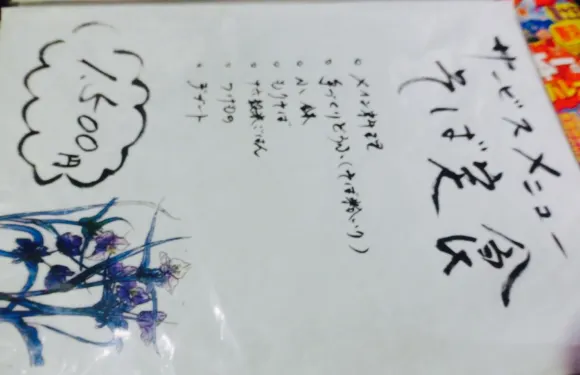 サービスメニュー
そば定食
メイン料理
手づくりどうふ(そば粉入り)
小鉢
もりそば
ごはん
つけもの
デザート
1,500円